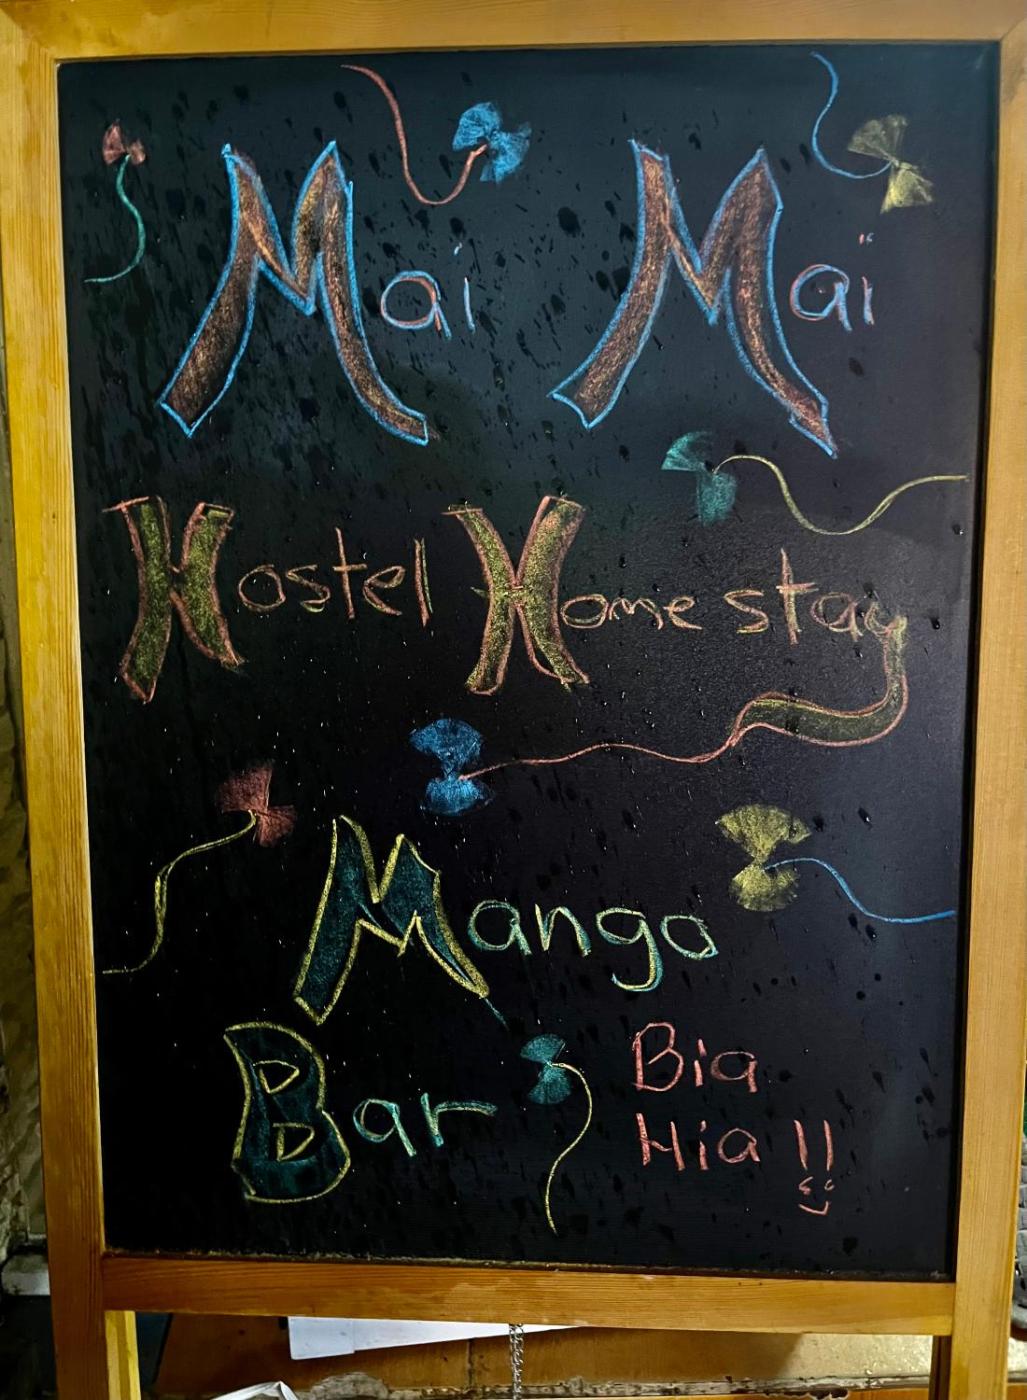 Mai Mai
Hostel Homestay
Mango
Bar
Bia
Hia !!